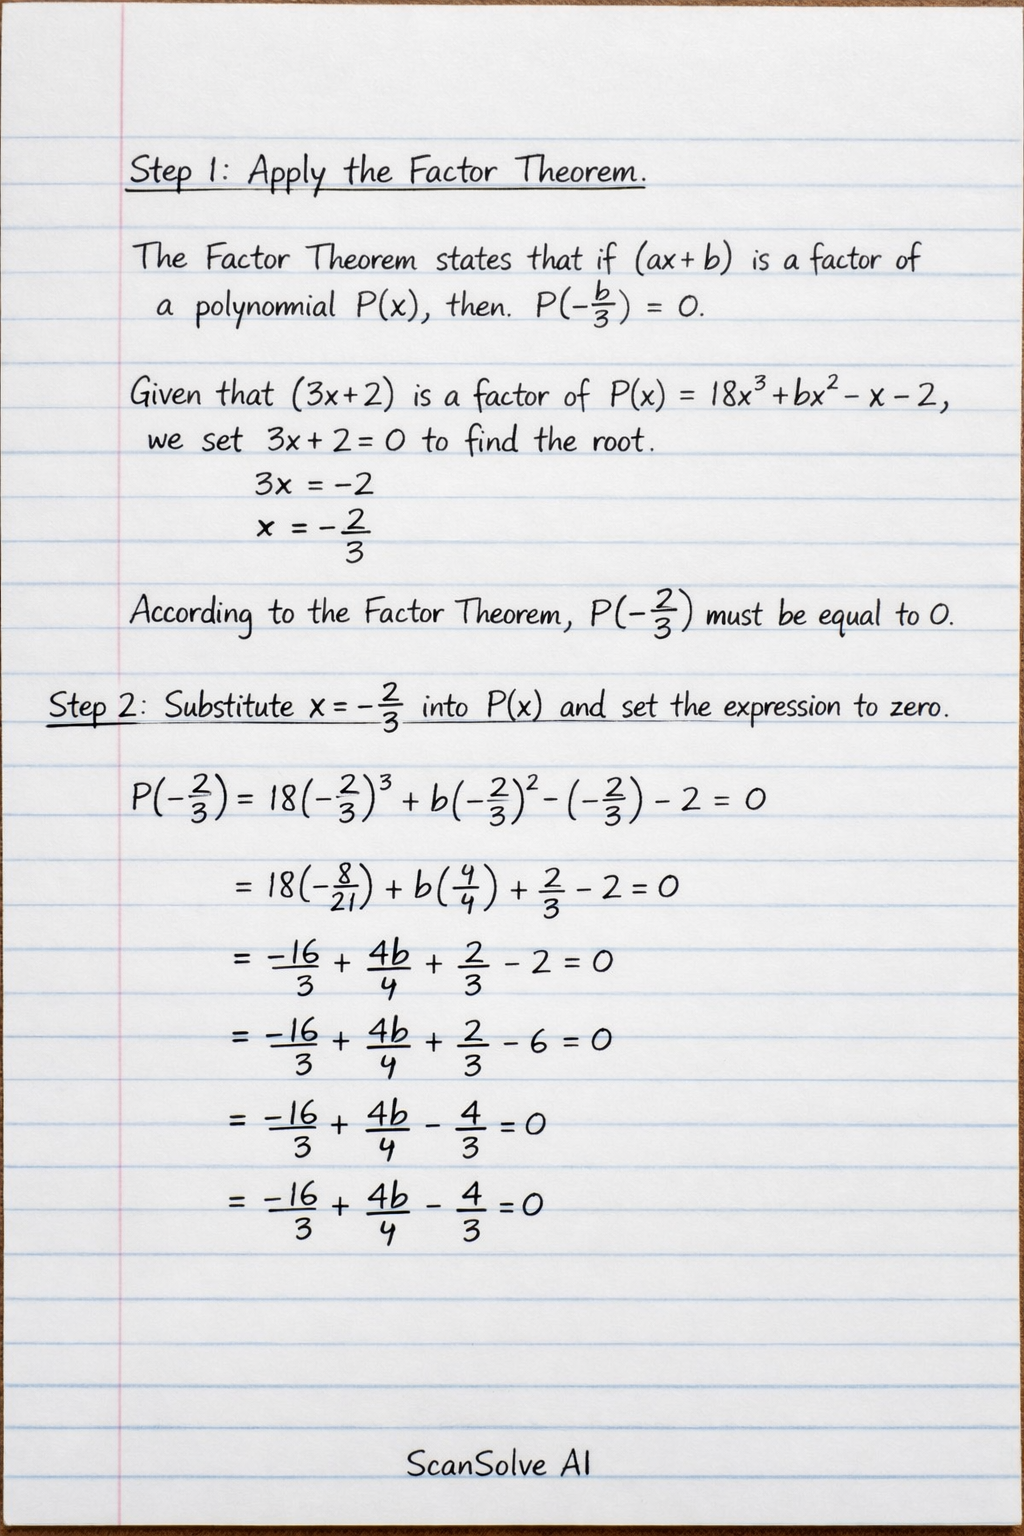 Step 1: Apply the Factor Theorem.
The Factor Theorem states that if (ax + b) is a factor of
a polynomial P(x), then. P(-b/3) = 0.
Given that (3x+2) is a factor of P(x) = 18x³ + bx² - x - 2,
we set 3x + 2 = 0 to find the root.
3x = -2
x = -2/3
According to the Factor Theorem, P(-2/3) must be equal to 0.
Step 2: Substitute x = -2/3 into P(x) and set the expression to zero.
P(-2/3) = 18(-2/3)³ + b(-2/3)² - (-2/3) - 2 = 0
= 18(-8/21) + b(4/4) + 2/3 - 2 = 0
= -16/3 + 4b/4 + 2/3 - 2 = 0
= -16/3 + 4b/4 + 2/3 - 6 = 0
= -16/3 + 4b/4 - 4/3 = 0
= -16/3 + 4b/4 - 4/3 = 0
ScanSolve AI